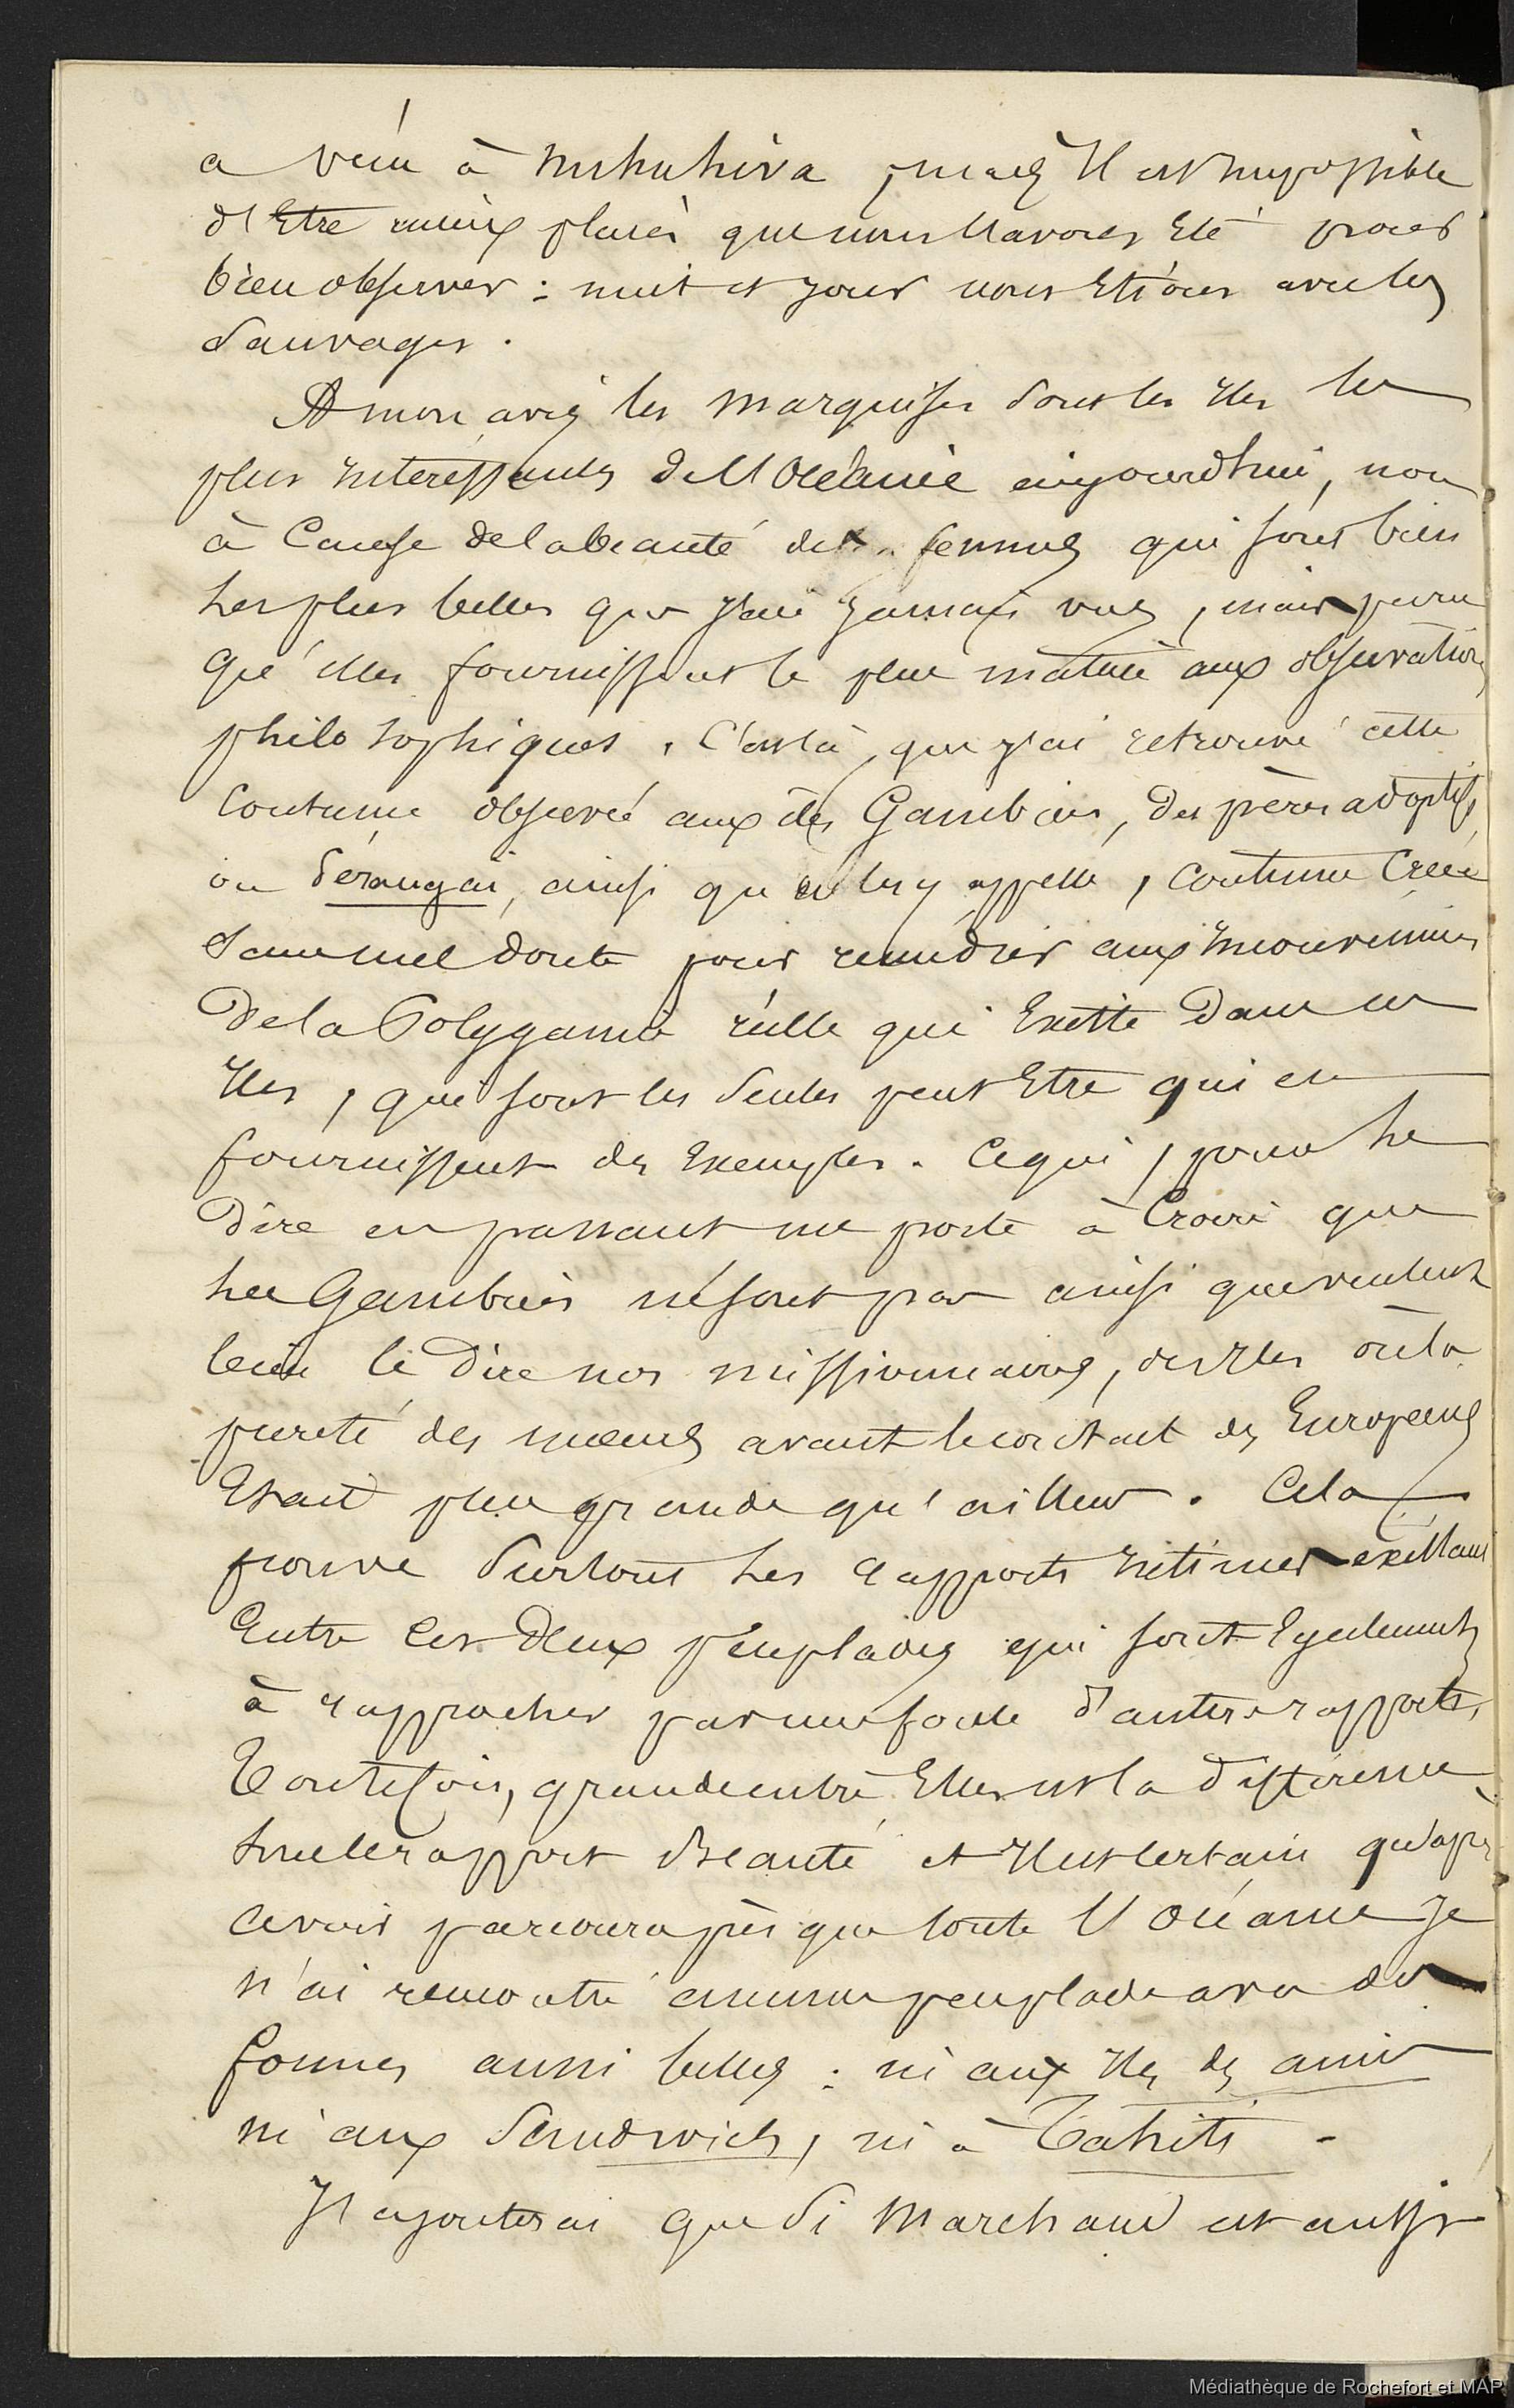 a vécu à Nukuhiva, mais il est impossible
d'Etre mieux placés que nous l'avons Eté pour
bien observer : nuit et jour nous Etions avec les
Sauvages.
A mon avis les Marquises sont les Iles les
plus Intéressantes de l'Océanie aujourd'hui, non
à Cause de la beauté des femmes qui sont bien
les plus belles que j'aie jamais vues, mais parce
qu'elles fournissent le plus matière aux observations
philosophiques. C'est là que j'ai retrouvé cette
Coutume observée aux îles Gambier, des pères adoptifs,
ou ainsi qu'on les y appelle, Coutume Créée
Sans nul doute pour remédier aux Inconvénients
De la Polygamie réelle qui Existe Dans ces
Iles, qui sont les Seules peut Etre qui en
fournissent des Exemples. Ce qui, pour le
Dire en passant me porte à Croire que
les Gambier ne sont pas ainsi que veulent
bien le Dire nos missionnaires, des Iles où la
pureté des moeurs avant le contact des Européens
Etait plus grande qu'ailleurs. Cela
prouve Surtout les rapports Intimes existant
Entre Ces Deux peuplades qui sont Egalement
à rapprocher par une foule d'autres rapports,
Toutefois, grande entre Elles est la différence
sous le rapport Beauté et Il est certain qu'après
avoir parcouru presque toute l'océanie Je
n'ai rencontré aucune peuplade avec des
formes aussi belles : ni aux Iles des amis
ni aux Sandwich, ni à Tahiti.
J'ajouterai que Si Marchand est aussi
Médiathèque de Rochefort et MAP